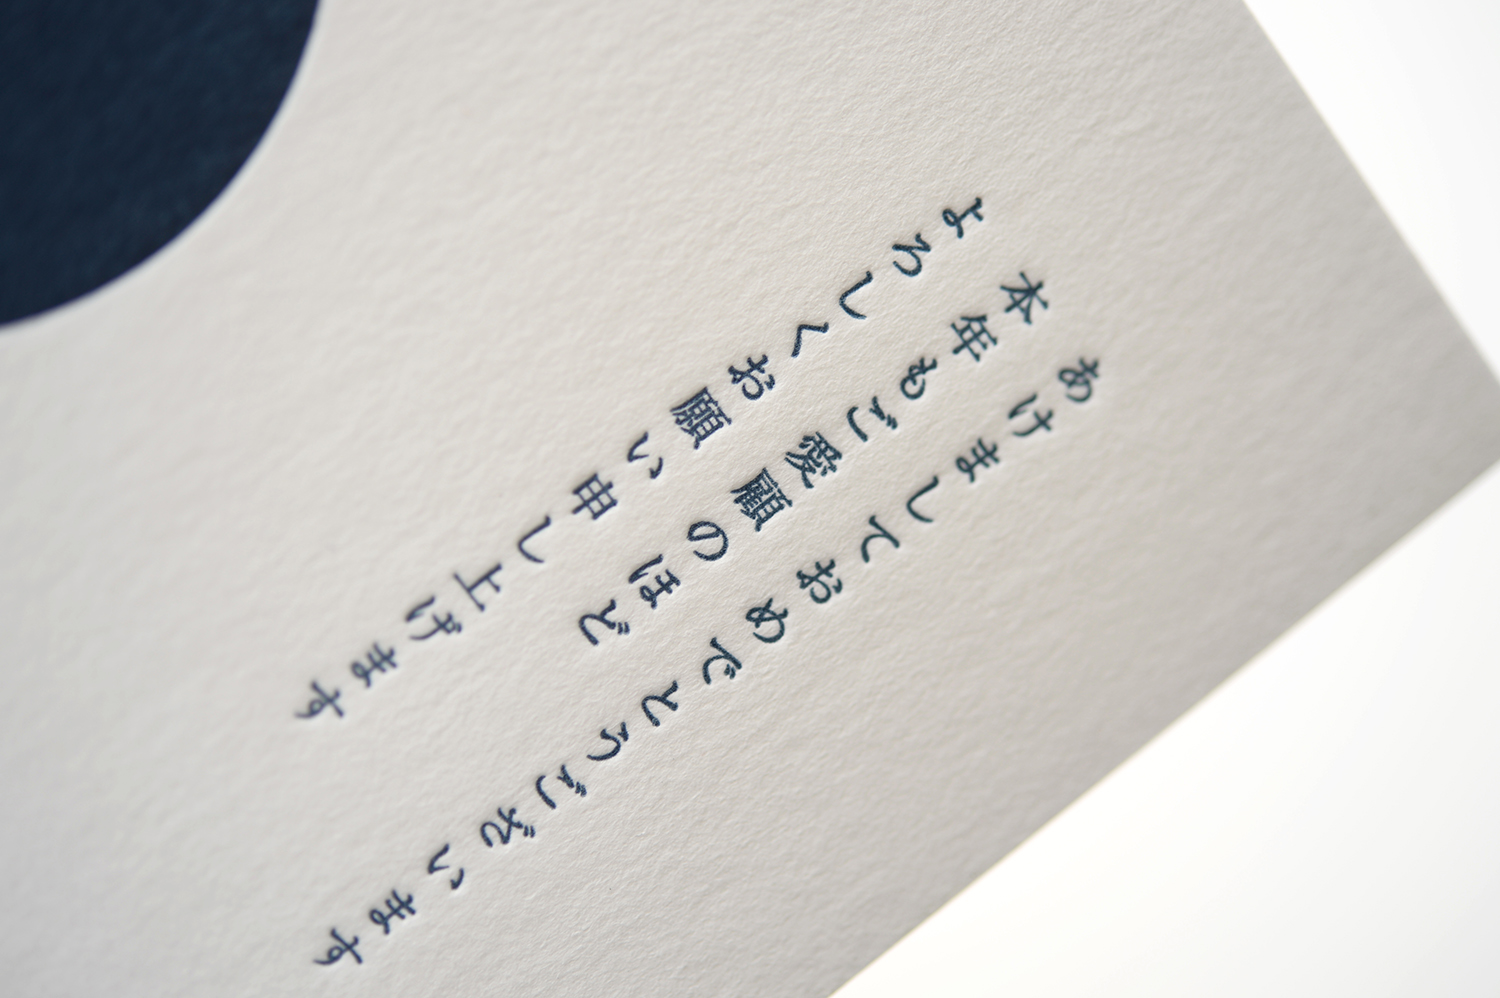 あけましておめでとうございます
本年もご愛顧のほど
よろしくお願い申し上げます